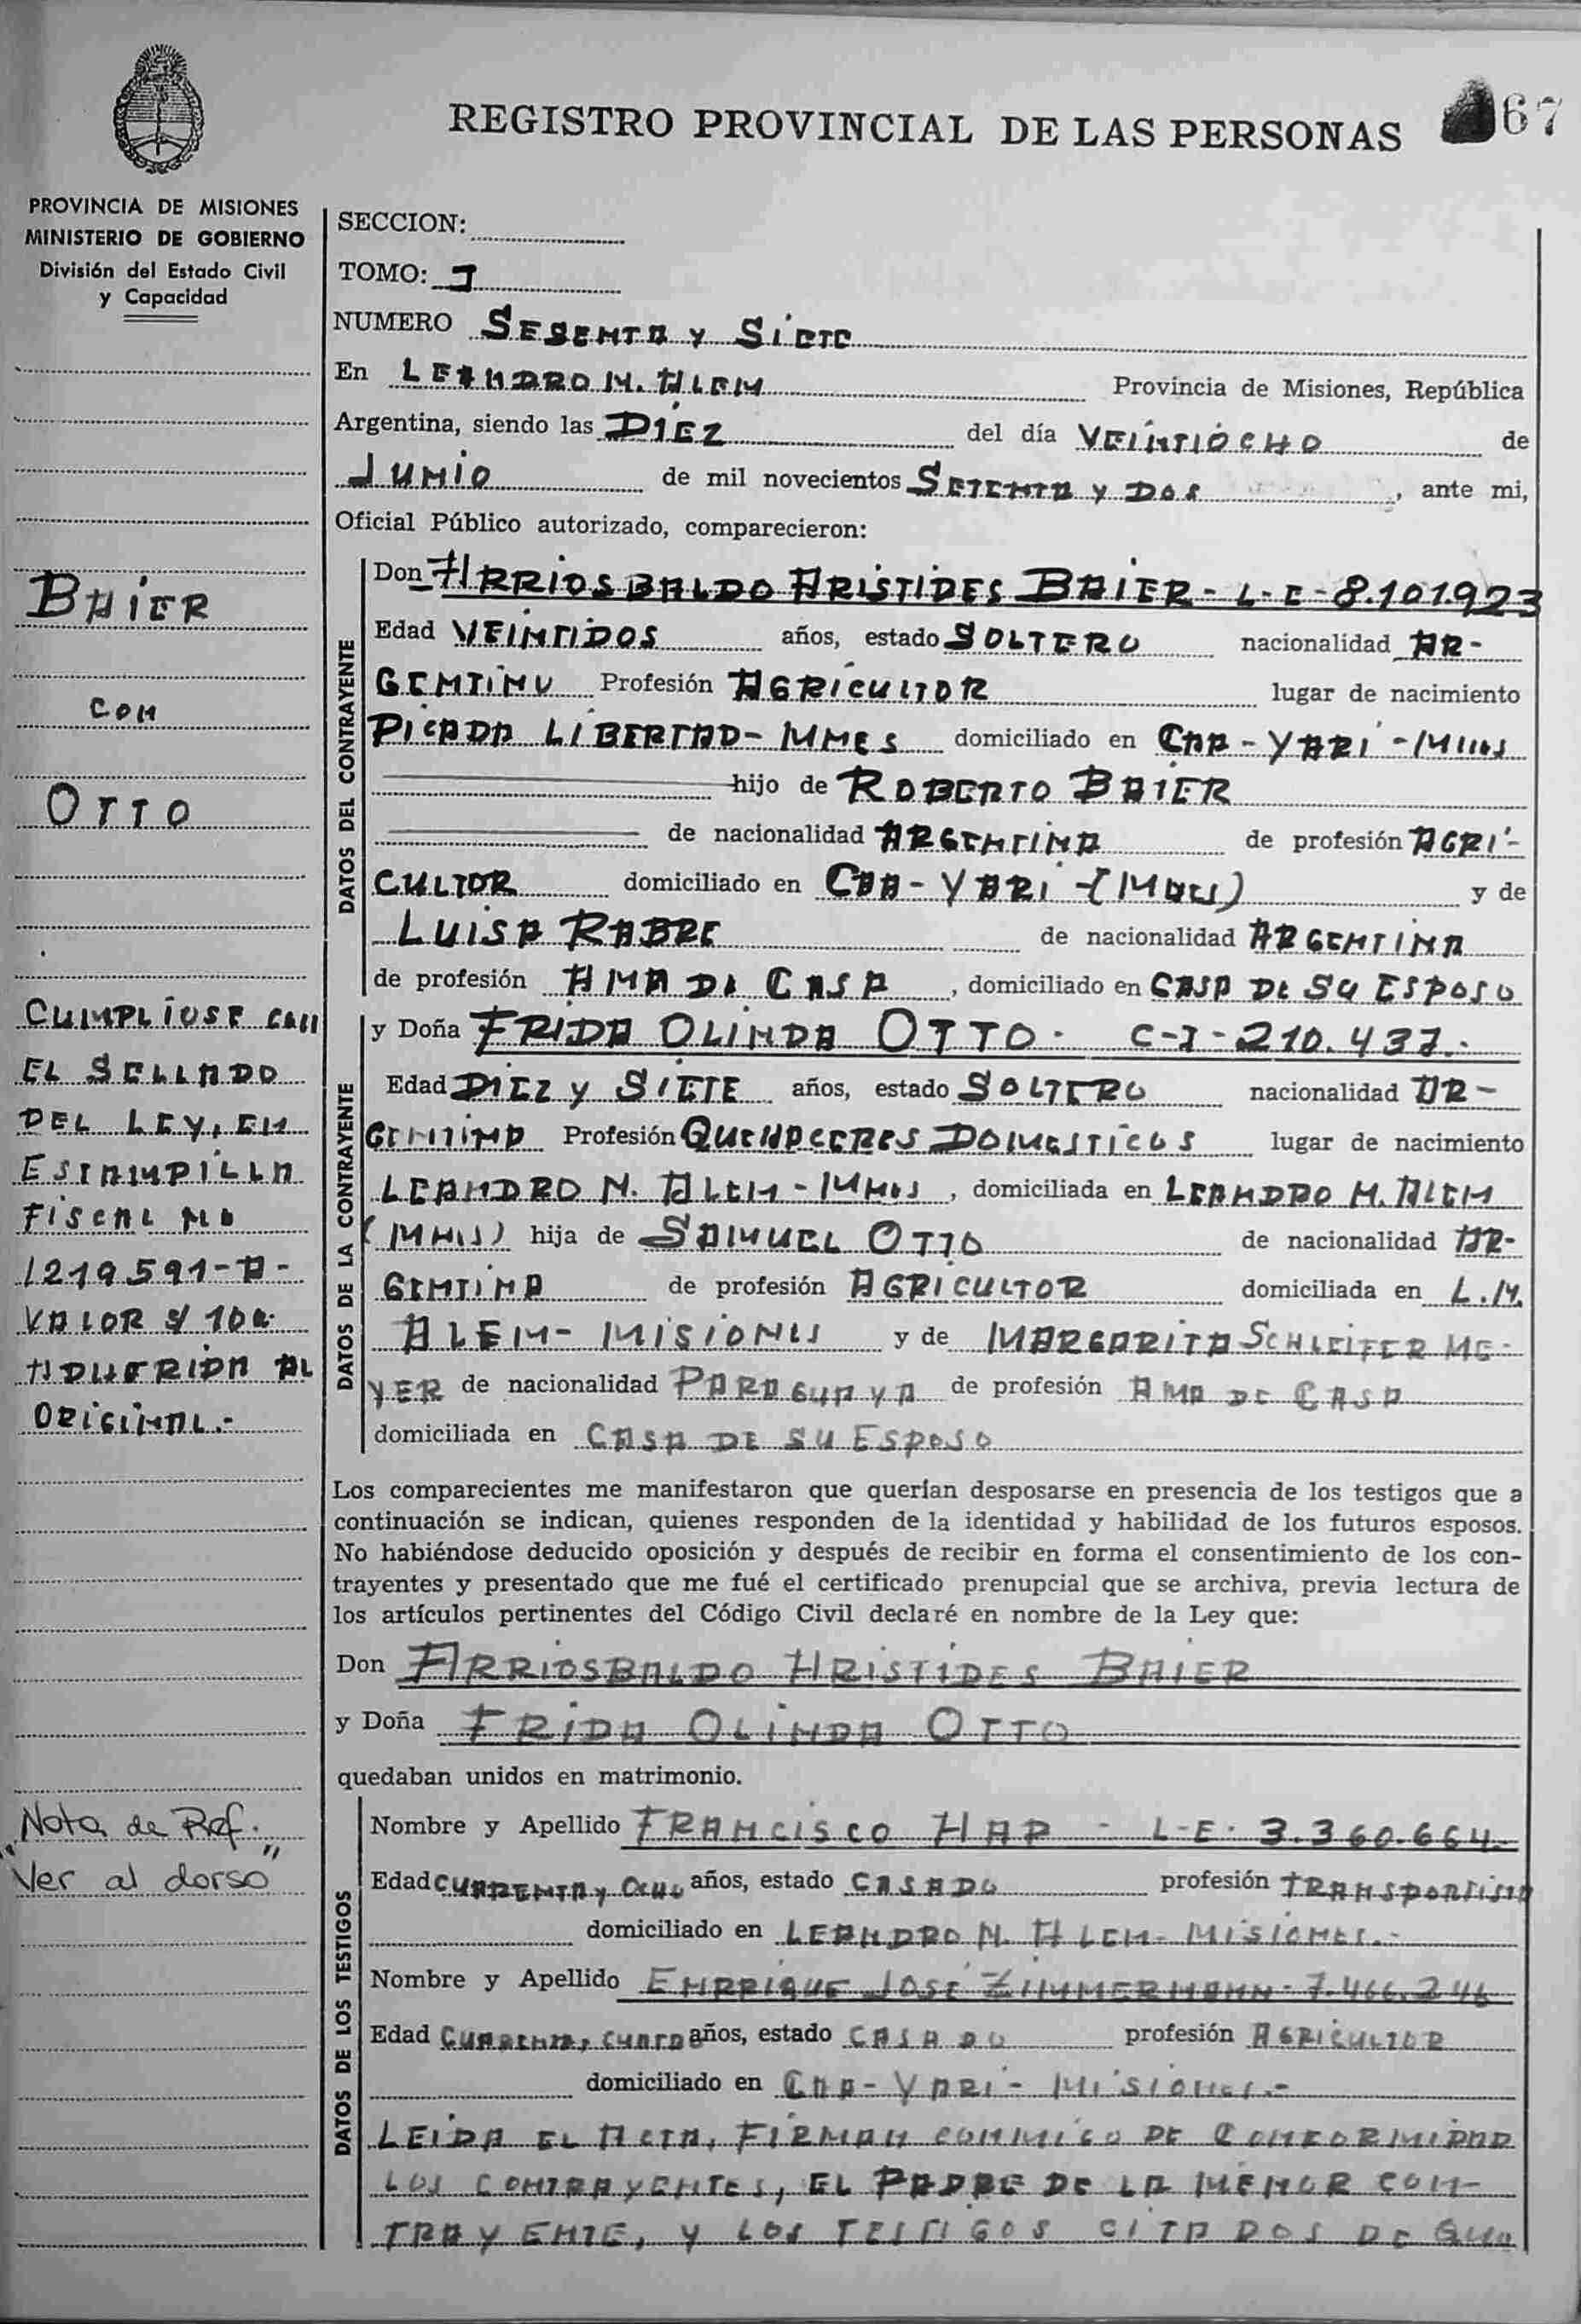 REGISTRO PROVINCIAL DE LAS PERSONAS 67
PROVINCIA DE MISIONES
MINISTERIO DE GOBIERNO
División del Estado Civil
y Capacidad
BAIER
CON
OTTO
CUMPLIOSE CON
EL SELLADO
DEL LEY, EN
ESTAMPILLA
FISCAL No
1219591-A-
VALOR $/ 100.
ADHERIDA AL
ORIGINAL.-
"Nota de Ref.
Ver al dorso"
SECCION:
TOMO: I
NUMERO SESENTA Y SIETE
En LEANDRO N. ALEM Provincia de Misiones, República
Argentina, siendo las DIEZ del día VEINTIOCHO de
JUNIO de mil novecientos SETENTA Y DOS, ante mi,
Oficial Público autorizado, comparecieron:
DATOS DEL CONTRAYENTE
Don ARRIOSBALDO ARISTIDES BAIER - L-E-8.101.923
Edad VEINTIDOS años, estado SOLTERO nacionalidad AR-
GENTINO Profesión AGRICULTOR lugar de nacimiento
PICADA LIBERTAD- MNES domiciliado en CAA-YARI -Mnes
hijo de ROBERTO BAIER
de nacionalidad ARGENTINA de profesión AGRI-
CULTOR domiciliado en CAA-YARI -(Mnes) y de
LUISA RABRE de nacionalidad ARGENTINA
de profesión AMA DE CASA, domiciliado en CASA DE SU ESPOSO
DATOS DE LA CONTRAYENTE
y Doña FRIDA OLINDA OTTO. C-I-210.437.-
Edad DIEZ Y SIETE años, estado SOLTERO nacionalidad AR-
GENTINA Profesión QUEHACERES DOMESTICOS lugar de nacimiento
LEANDRO N. ALEM-Mnes, domiciliada en LEANDRO N. ALEM
(Mnes) hija de SAMUEL OTTO de nacionalidad AR-
GENTINA de profesión AGRICULTOR domiciliada en L.N.
ALEM- MISIONES y de MARGARITA SCHLEIFER ME-
YER de nacionalidad PARAGUAYA de profesión AMA DE CASA
domiciliada en CASA DE SU ESPOSO
Los comparecientes me manifestaron que querían desposarse en presencia de los testigos que a
continuación se indican, quienes responden de la identidad y habilidad de los futuros esposos.
No habiéndose deducido oposición y después de recibir en forma el consentimiento de los con-
trayentes y presentado que me fué el certificado prenupcial que se archiva, previa lectura de
los artículos pertinentes del Código Civil declaré en nombre de la Ley que:
Don ARRIOSBALDO ARISTIDES BAIER
y Doña FRIDA OLINDA OTTO
quedaban unidos en matrimonio.
DATOS DE LOS TESTIGOS
Nombre y Apellido FRANCISCO HAP - L-E- 3.360.664.-
Edad CUARENTA Y OCHO años, estado CASADO profesión TRANSPORTISTA
domiciliado en LEANDRO N. ALEM- MISIONES.-
Nombre y Apellido ENRRIQUE JOSÉ ZIMMERMANN-7.466.246
Edad CUARENTA, CUATRO años, estado CASADO profesión AGRICULTOR
domiciliado en CAA-YARI- MISIONES.-
LEIDA EL ACTA, FIRMAN CONMIGO DE CONFORMIDAD
LOS CONTRAYENTES, EL PADRE DE LA MENOR CON-
TRAYENTE, Y LOS TESTIGOS CITADOS DE QUE